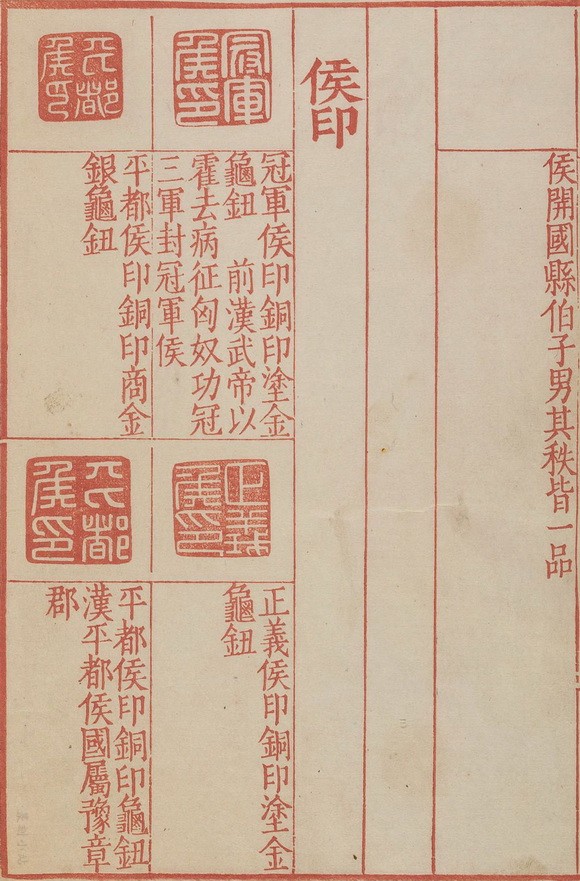 侯開國縣伯子男其秩皆一品
侯印
冠軍
侯印
冠軍侯印銅印塗金
龜鈕　前漢武帝以
霍去病征匈奴功冠
三軍封冠軍侯
正義
侯印
正義侯印銅印塗金
龜鈕
平都
侯印
平都侯印銅印商金
銀龜鈕
平都
侯印
平都侯印銅印龜鈕
漢平都侯國屬豫章
郡